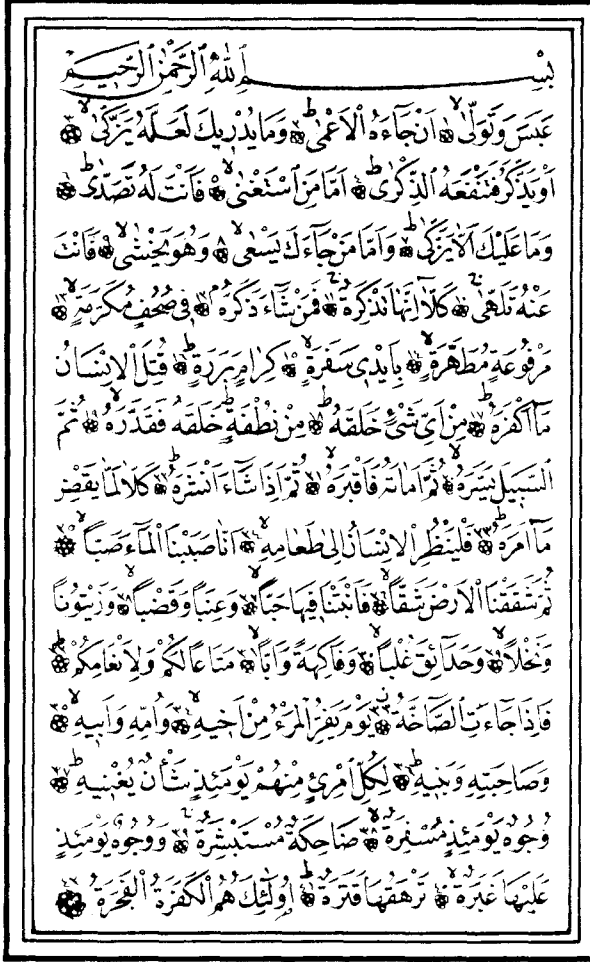 بِسْمِ ٱللّٰهِ ٱلرَّحْمٰنِ ٱلرَّحٖيمِ
عَبَسَ وَتَوَلّٰىۙ ﴿١﴾ اَنْ جَٓاءَهُ الْاَعْمٰىؕ ﴿٢﴾ وَمَا يُدْرٖيكَ لَعَلَّهُ يَزَّكّٰىۙ ﴿٣﴾
اَوْ يَذَّكَّرُ فَتَنْفَعَهُ الذِّكْرٰىؕ ﴿٤﴾ اَمَّا مَنِ اسْتَغْنٰىۙ ﴿٥﴾ فَاَنْتَ لَهُ تَصَدّٰىؕ ﴿٦﴾
وَمَا عَلَيْكَ اَلَّا يَزَّكّٰىؕ ﴿٧﴾ وَاَمَّا مَنْ جَٓاءَكَ يَسْعٰىۙ ﴿٨﴾ وَهُوَ يَخْشٰىۙ ﴿٩﴾ فَاَنْتَ
عَنْهُ تَلَهّٰىۚ ﴿١٠﴾ كَلَّٓا اِنَّهَا تَذْكِرَةٌۚ ﴿١١﴾ فَمَنْ شَٓاءَ ذَكَرَهُۘ ﴿١٢﴾ فٖي صُحُفٍ مُكَرَّمَةٍۙ ﴿١٣﴾
مَرْفُوعَةٍ مُطَهَّرَةٍۙ ﴿١٤﴾ بِاَيْدٖي سَفَرَةٍۙ ﴿١٥﴾ كِرَامٍ بَرَرَةٍؕ ﴿١٦﴾ قُتِلَ الْاِنْسَانُ
مَٓا اَكْفَرَهُؕ ﴿١٧﴾ مِنْ اَيِّ شَيْءٍ خَلَقَهُؕ ﴿١٨﴾ مِنْ نُطْفَةٍؕ خَلَقَهُ فَقَدَّرَهُۙ ﴿١٩﴾ ثُمَّ
السَّبٖيلَ يَسَّرَهُۙ ﴿٢٠﴾ ثُمَّ اَمَاتَهُ فَاَقْبَرَهُۙ ﴿٢١﴾ ثُمَّ اِذَا شَٓاءَ اَنْشَرَهُؕ ﴿٢٢﴾ كَلَّا لَمَّا يَقْضِ
مَٓا اَمَرَهُؕ ﴿٢٣﴾ فَلْيَنْظُرِ الْاِنْسَانُ اِلٰى طَعَامِهٖۙ ﴿٢٤﴾ اَنَّا صَبَبْنَا الْمَٓاءَ صَبًّاۙ ﴿٢٥﴾
ثُمَّ شَقَقْنَا الْاَرْضَ شَقًّاۙ ﴿٢٦﴾ فَاَنْبَتْنَا فٖيهَا حَبًّاۙ ﴿٢٧﴾ وَعِنَبًا وَقَضْبًاۙ ﴿٢٨﴾ وَزَيْتُونًا
وَنَخْلًاۙ ﴿٢٩﴾ وَحَدَٓائِقَ غُلْبًاۙ ﴿٣٠﴾ وَفَاكِهَةً وَاَبًّاۙ ﴿٣١﴾ مَتَاعًا لَكُمْ وَلِاَنْعَامِكُمْؕ ﴿٣٢﴾
فَاِذَا جَٓاءَتِ الصَّٓاخَّةُؗ ﴿٣٣﴾ يَوْمَ يَفِرُّ الْمَرْءُ مِنْ اَخٖيهِۙ ﴿٣٤﴾ وَاُمِّهٖ وَاَبٖيهِۙ ﴿٣٥﴾
وَصَاحِبَتِهٖ وَبَنٖيهِؕ ﴿٣٦﴾ لِكُلِّ امْرِئٍ مِنْهُمْ يَوْمَئِذٍ شَأْنٌ يُغْنٖيهِؕ ﴿٣٧﴾
وُجُوهٌ يَوْمَئِذٍ مُسْفِرَةٌۙ ﴿٣٨﴾ ضَاحِكَةٌ مُسْتَبْشِرَةٌۚ ﴿٣٩﴾ وَوُجُوهٌ يَوْمَئِذٍ
عَلَيْهَا غَبَرَةٌۙ ﴿٤٠﴾ تَرْهَقُهَا قَتَرَةٌؕ ﴿٤١﴾ اُولٰٓئِكَ هُمُ الْكَفَرَةُ الْفَجَرَةُ ﴿٤٢﴾